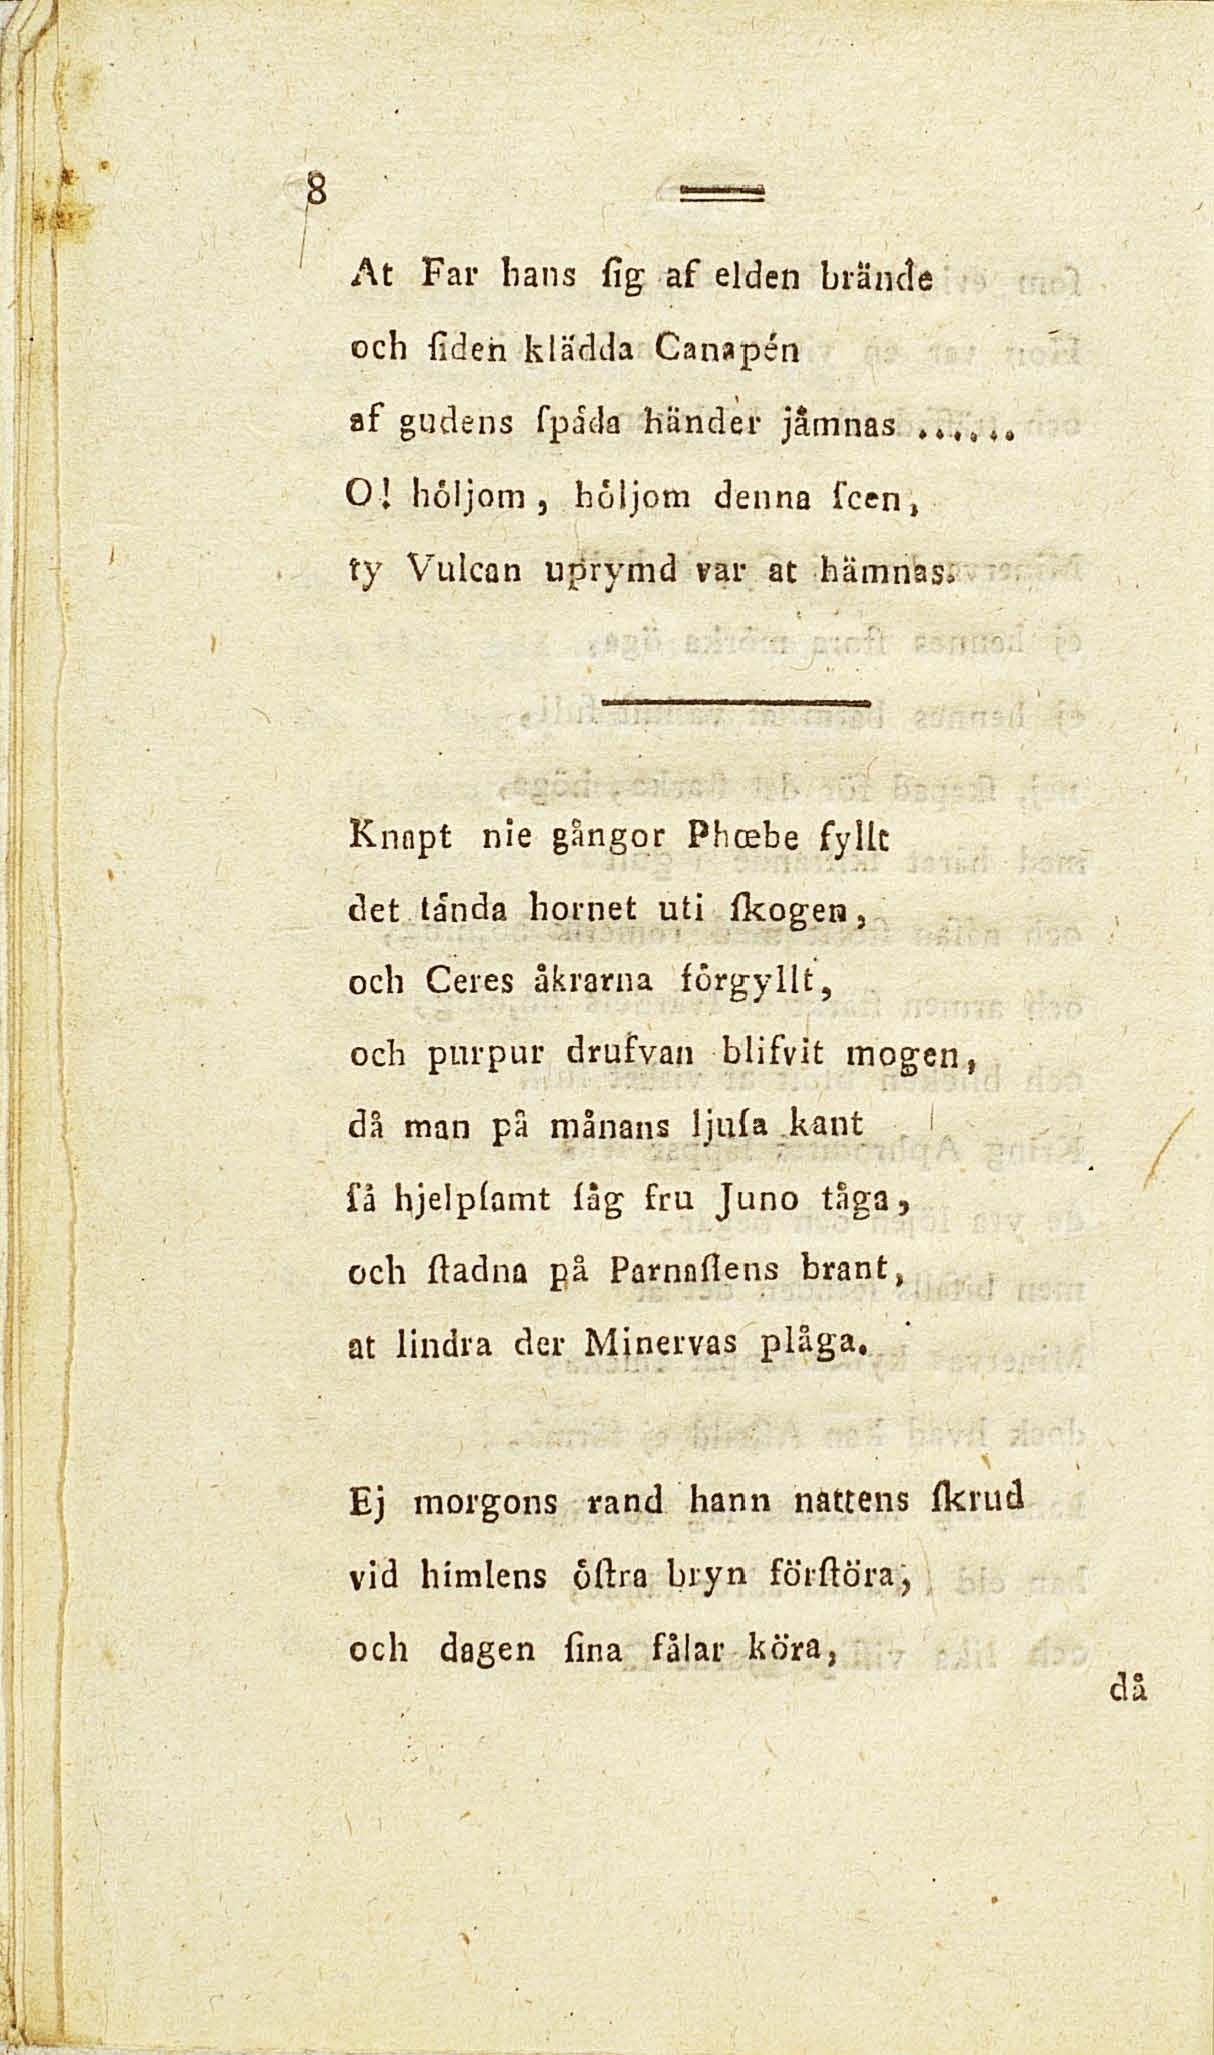 8
At Far hans ſig af elden brände
och ſiden klädda Canapén
af gudens ſpåda händer jåmnas ......
O! hôljom, hôljom denna ſcen,
ty Vulcan uprymd var at hämnas.
Knapt nie gångor Phœbe fyllt
det tånda hornet uti ſkogen,
och Ceres åkrarna fôrgyllt,
och purpur drufvan blifvit mogen,
då man på månans ljuſa kant
ſå hjelpſamt ſåg fru Juno tåga,
och ſtadna på Parnaſſens brant,
at lindra der Minervas plåga.
Ej morgons rand hann nattens ſkrud
vid himlens ôſtra bryn förſtöra,
och dagen ſina fålar köra,
då